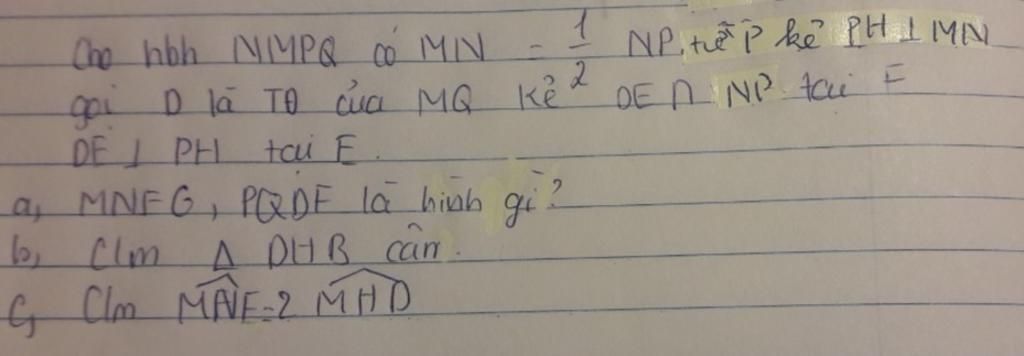 Cho hbh NMPQ có MN = 1/2 NP. từ P kẻ PH ⊥ MN
gọi D là TĐ của MQ kẻ DE ∩ NP tại F
DE ⊥ PH tại E.
a, MNFG, PQDF là hình gì?
b, C/m Δ DHB cân.
c, C/m MNF = 2 MHD